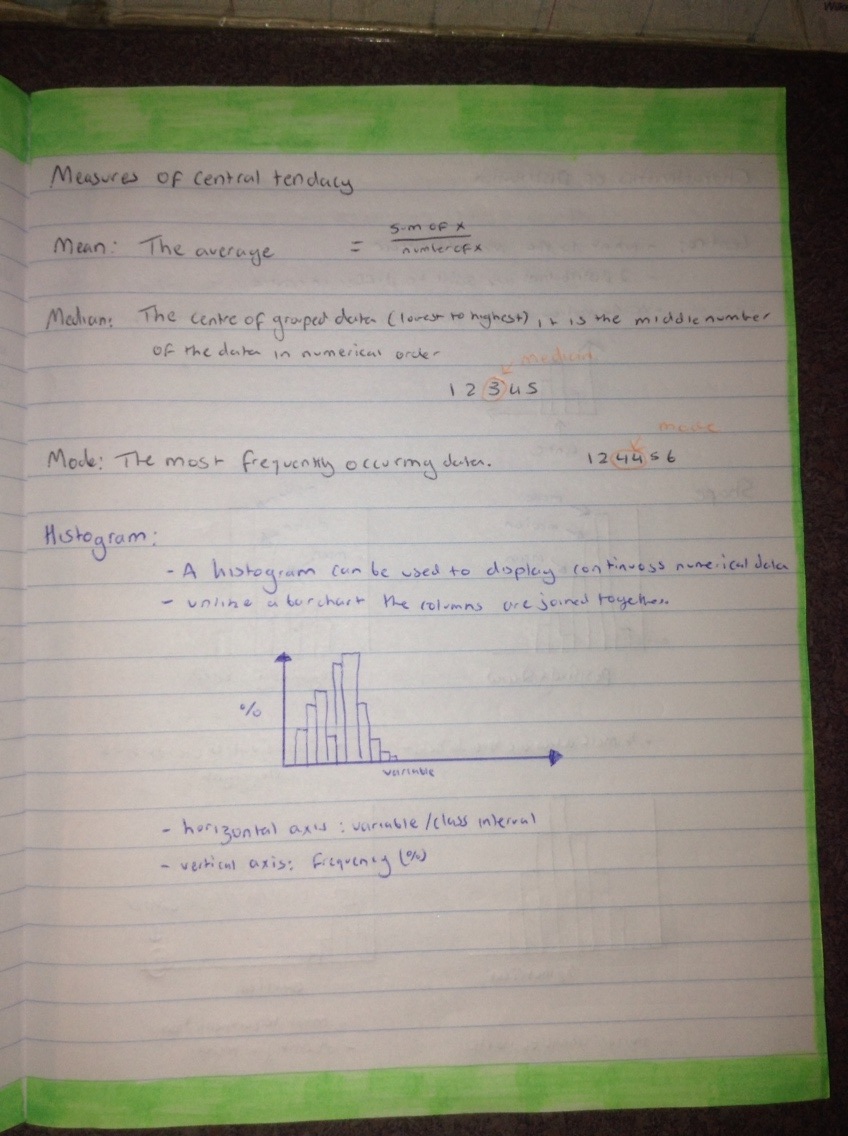 Measures of central tendacy
Mean: The average = sum of x
number of x
Median: The centre of grouped data (lowest to highest), it is the middle number
of the data in numerical order
median
1 2 3 4 5
mode
Mode: The most frequently occuring data. 1 2 4 4 5 6
Histogram:
- A histogram can be used to display continuoss numerical data
- unlike a barchart the columns are joined together.
%
variable
- horizontal axis : variable / class interval
- vertical axis: frequency (%)